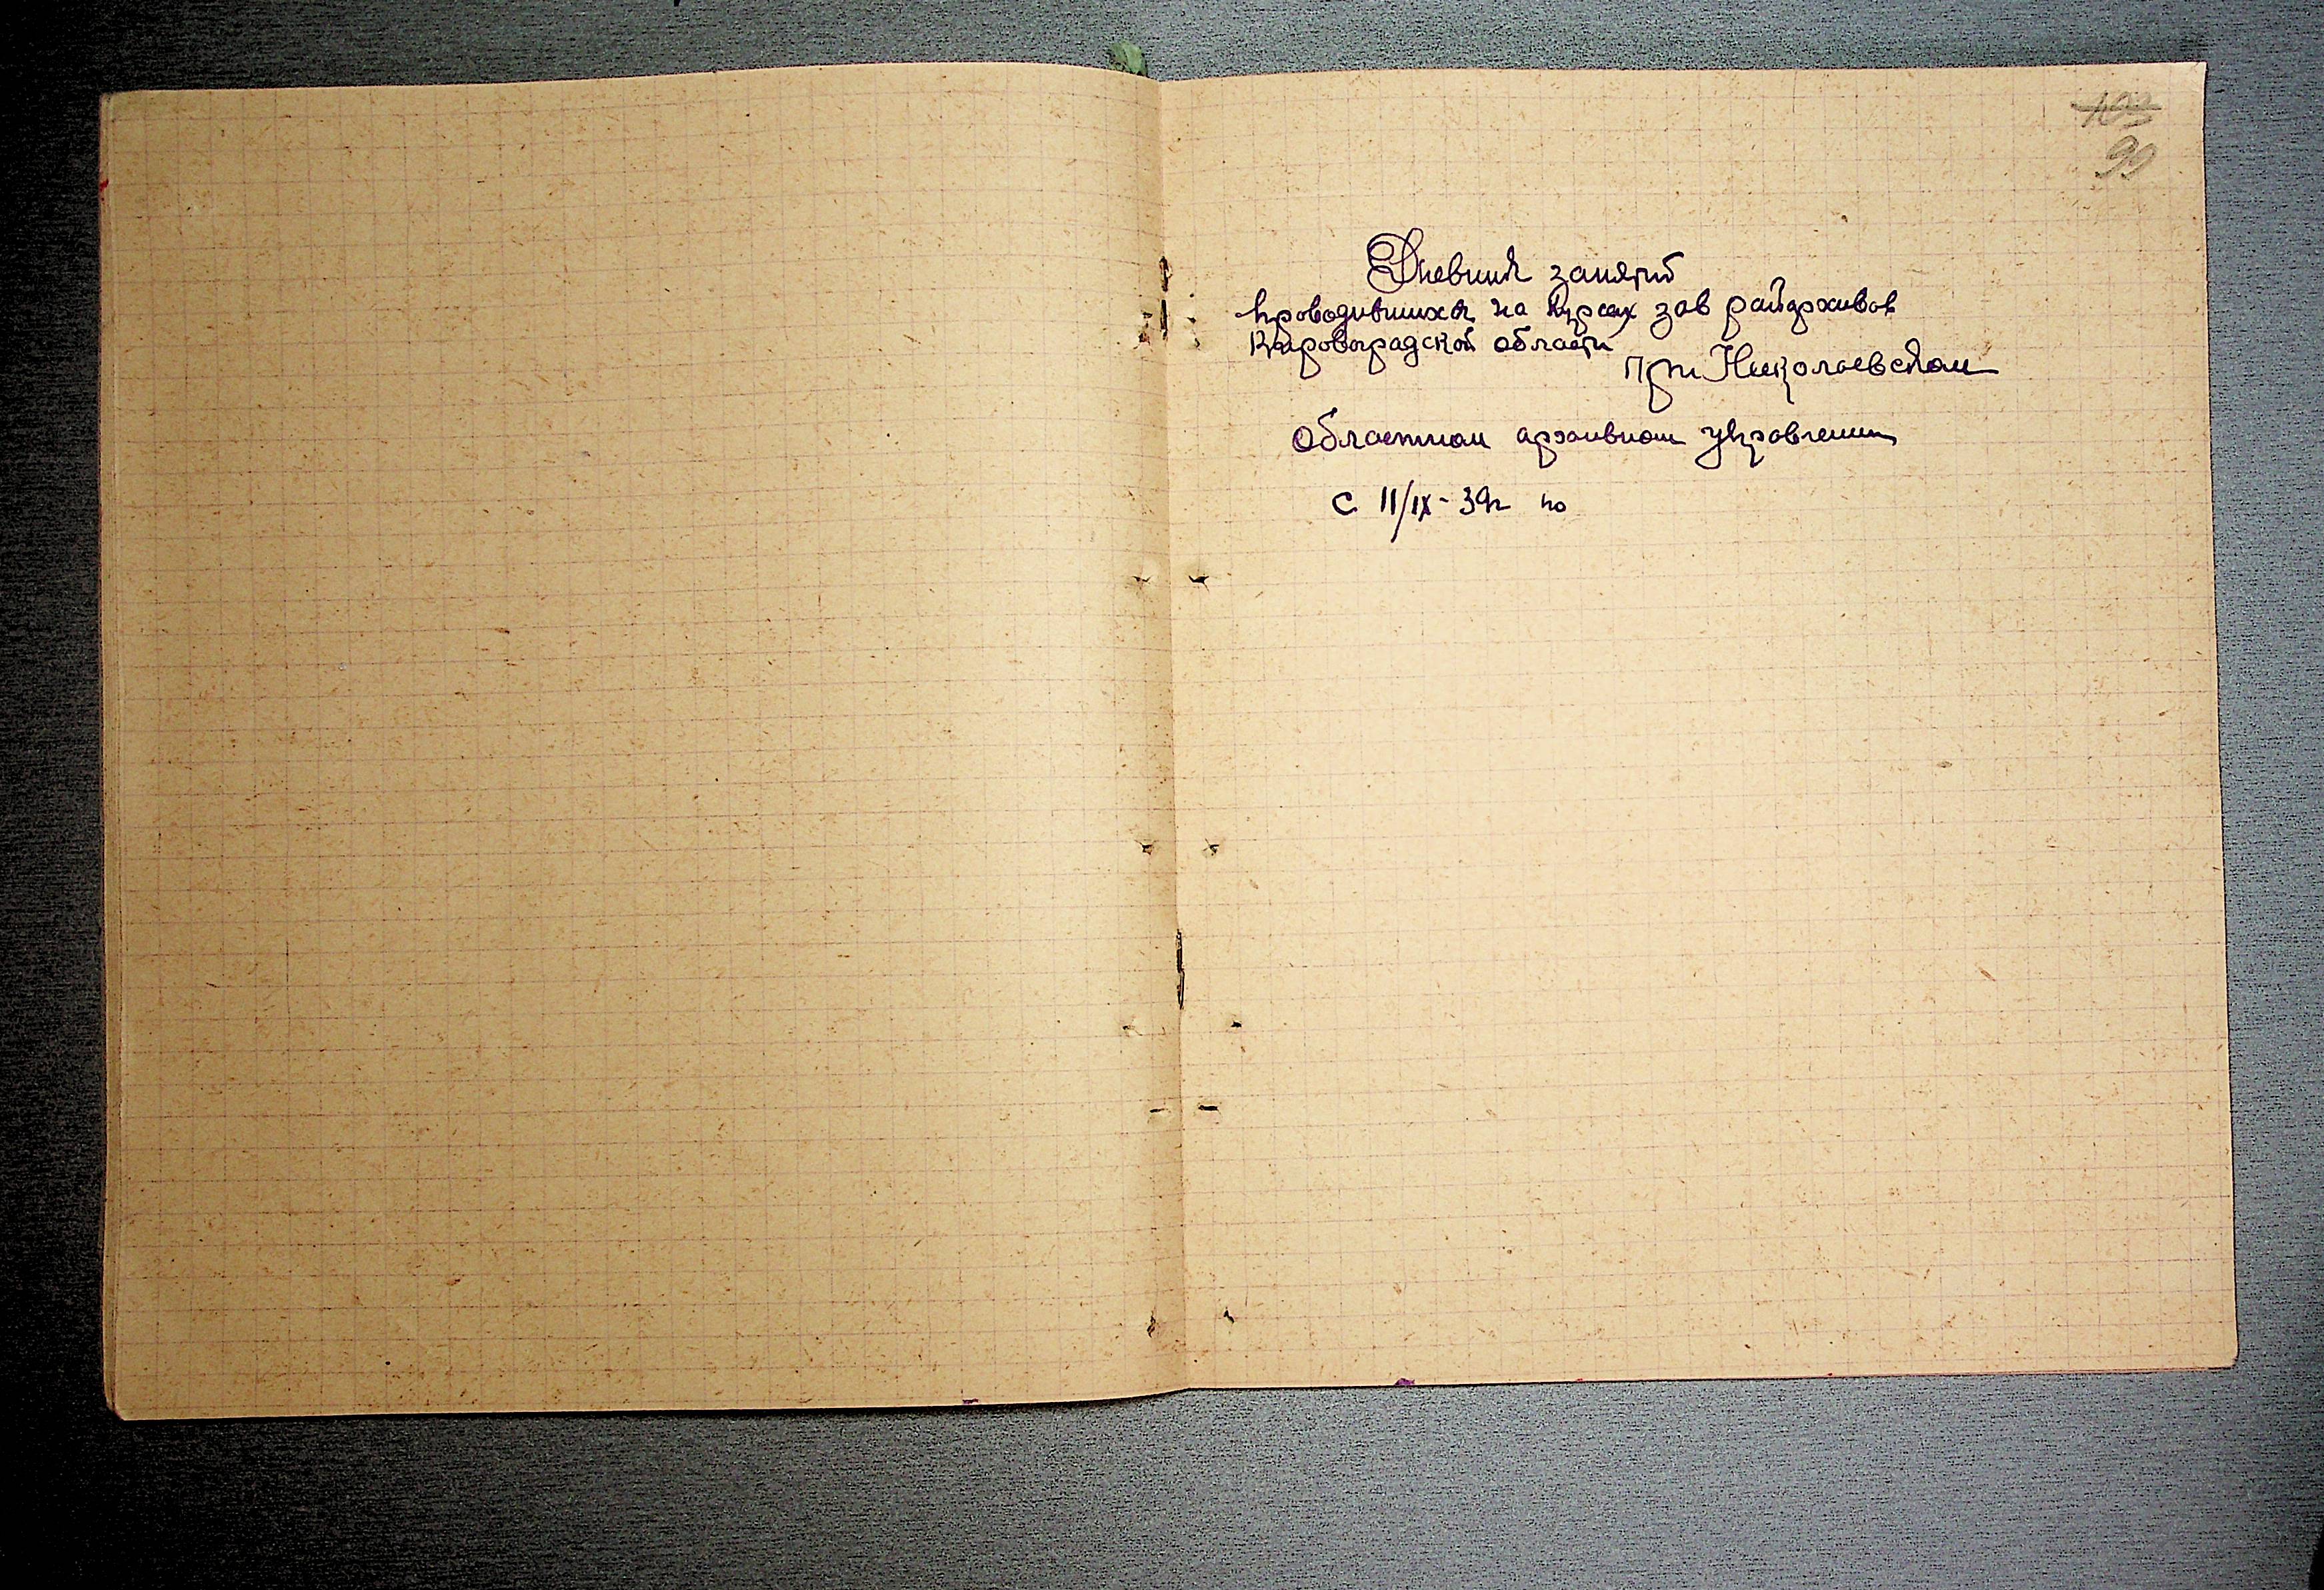 99
Дневник занятий
проводившихся на курсах зав райархивов
Кировоградской области
при Николаевском
областном архивном управлении
с 11/IX-39г по